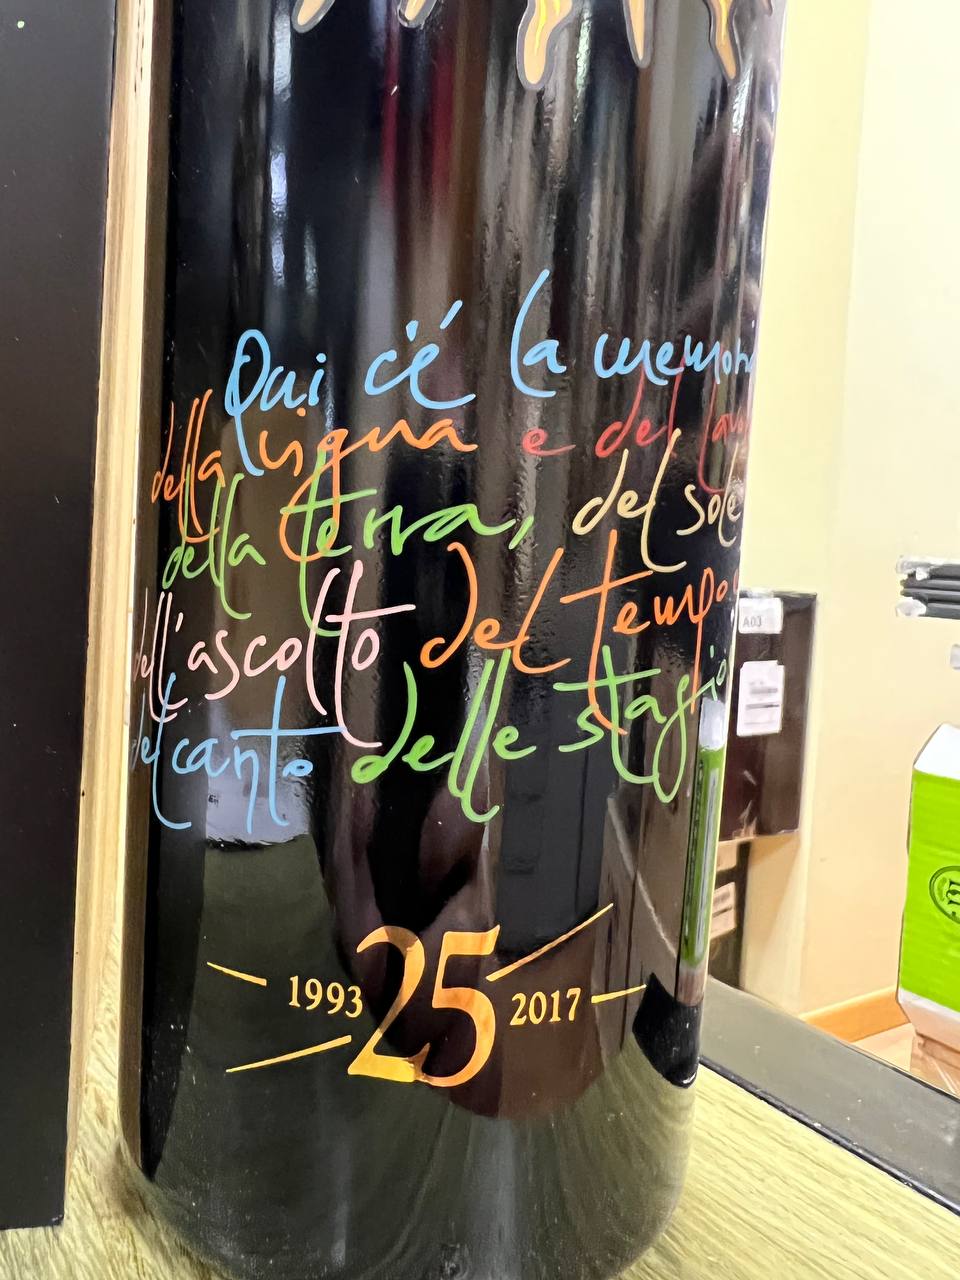 Qui c'é la memori
della vigna e del lavo
della terra, del sole
dell'ascolto del tempo
del canto delle stagio
1993 25 2017
A03